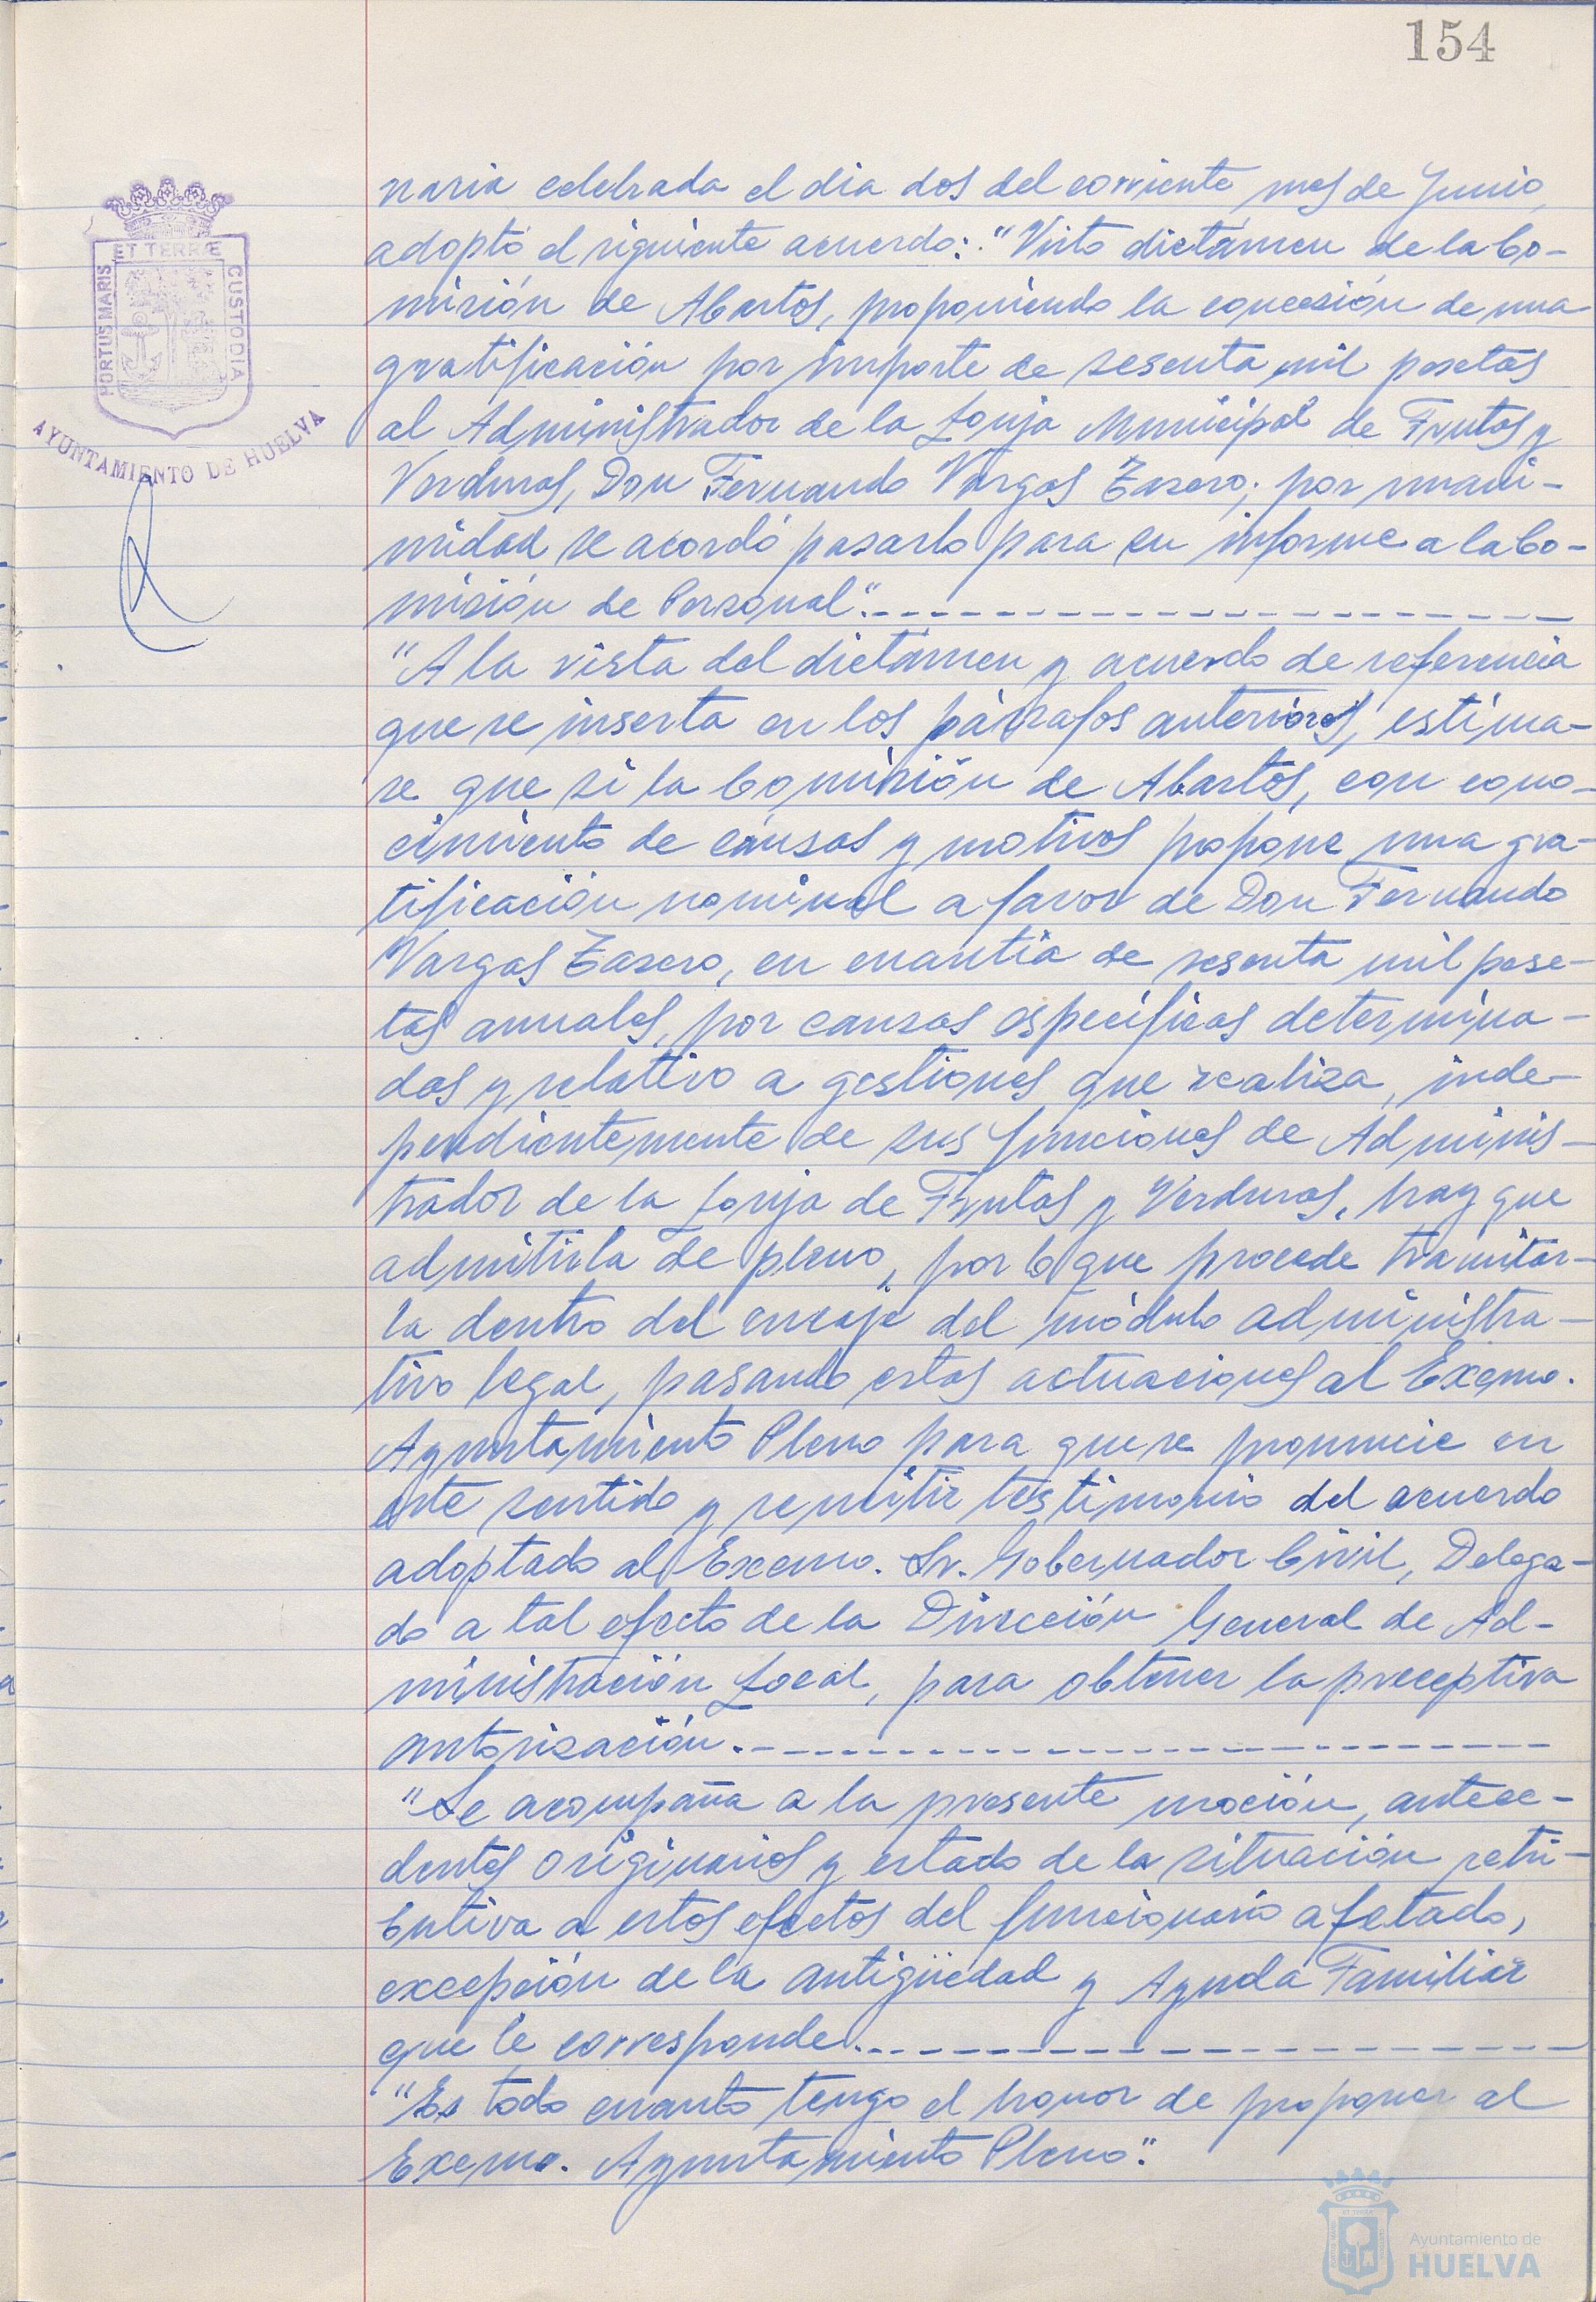 154
ET TERRÆ
PORTUS MARIS
CUSTODIA
AYUNTAMIENTO DE HUELVA
naria celebrada el dia dos del corriente mes de Junio,
adoptó el siguiente acuerdo: "Visto dictámen de la Co-
misión de Abastos, proponiendo la concesión de una
gratificación por importe de sesenta mil pesetas
al Administrador de la Lonja Municipal de Frutas y
Verduras, Don Fernando Vargas Zasero; por unani-
midad se acordó pasarlo para su informe a la Co-
misión de Personal".
"A la vista del dictámen y acuerdo de referencia
que se inserta en los párrafos anteriores, estima-
se que si la Comisión de Abastos, con cono-
cimiento de causas y motivos propone una gra-
tificación nominal a favor de Don Fernando
Vargas Zasero, en cuantia de sesenta mil pese-
tas anuales, por causas especificas determina-
das y relativo a gestiones que realiza, inde-
pendientemente de sus funciones de Adminis-
trador de la Lonja de Frutas y Verduras, hay que
admitirla de pleno, por lo que procede tramitar-
la dentro del encaje del módulo administra-
tivo legal, pasando estas actuaciones al Excmo.
Ayuntamiento Pleno para que se pronuncie en
este sentido y remitir testimonio del acuerdo
adoptado al Excmo. Sr. Gobernador Civil, Delega-
do a tal efecto de la Dirección General de Ad-
ministración Local, para obtener la preceptiva
autorización.
"Se acompaña a la presente moción, antece-
dentes originarios y estado de la situación retri-
butiva a estos efectos del funcionario afetado,
excepción de la antigüedad y Ayuda Familiar
que le corresponde.
"Es todo cuanto tengo el honor de proponer al
Excmo. Ayuntamiento Pleno".
Ayuntamiento de
HUELVA